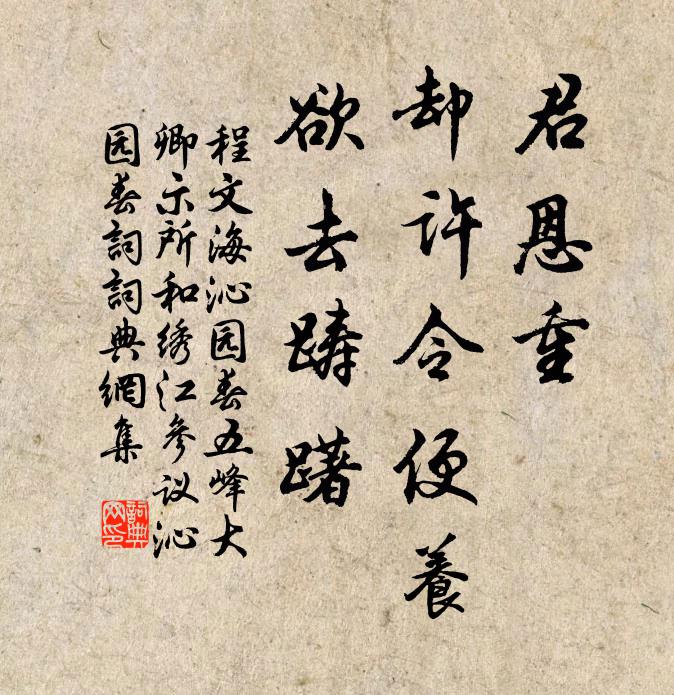 君恩重
却许令便養
欲去踌躇
程文海沁园春五峰大
卿示所和绣江参议沁
园春詞詞典網集
詞典
网印